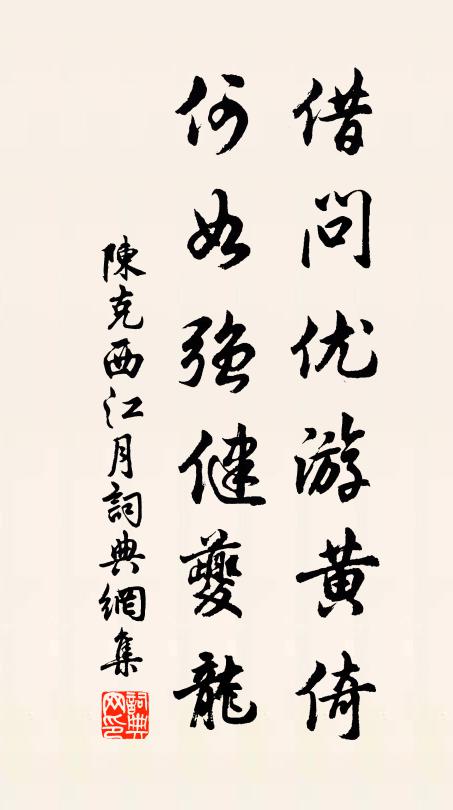 借问优游黄倚
何如强健夔龍
陳克西江月詞典網集
詞典网印